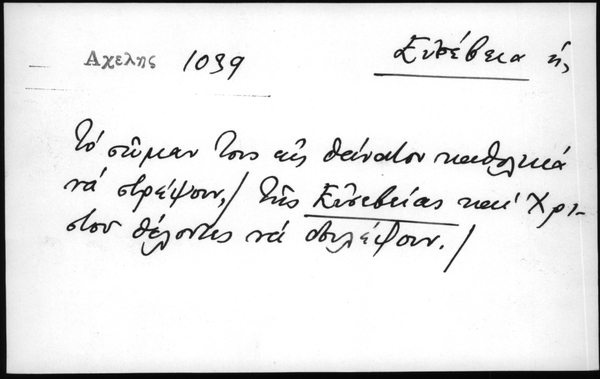 Αχελης 1039 Εὐσέβεια ἡ,
Τό σῶμαν τους εἰς θάνατον καθολικά
νά στρέψουν,/ τῆς Εὐσεβείας καί Χρι-
στοῦ θέλοντες νά δουλέψουν./